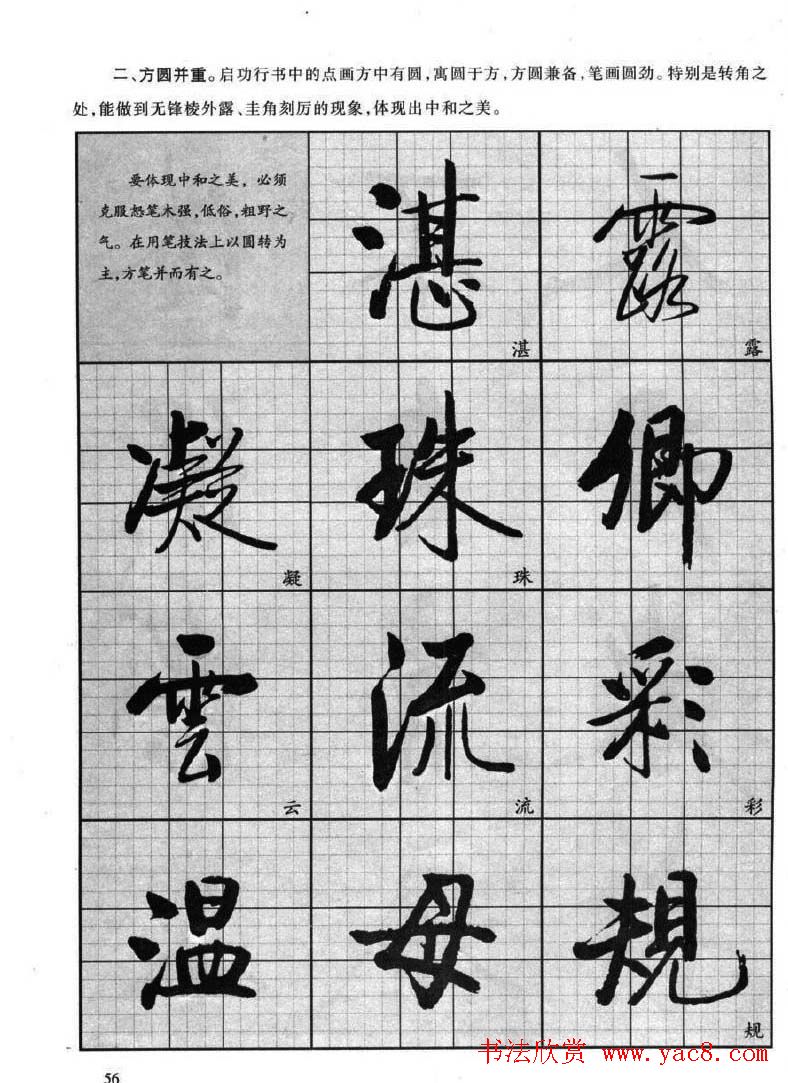 二、方圆并重。启功行书中的点画方中有圆,寓圆于方,方圆兼备,笔画圆劲。特别是转角之
处,能做到无锋棱外露、圭角刻厉的现象,体现出中和之美。
要体现中和之美,必须
克服怒笔木强,低俗,粗野之
气。在用笔技法上以圆转为
主,方笔并而有之。
湛 露
湛 露
凝 珠 卿
凝 珠
雲 流 彩
云 流 彩
温 母 規
规
书法欣赏 www.yac8.com
56